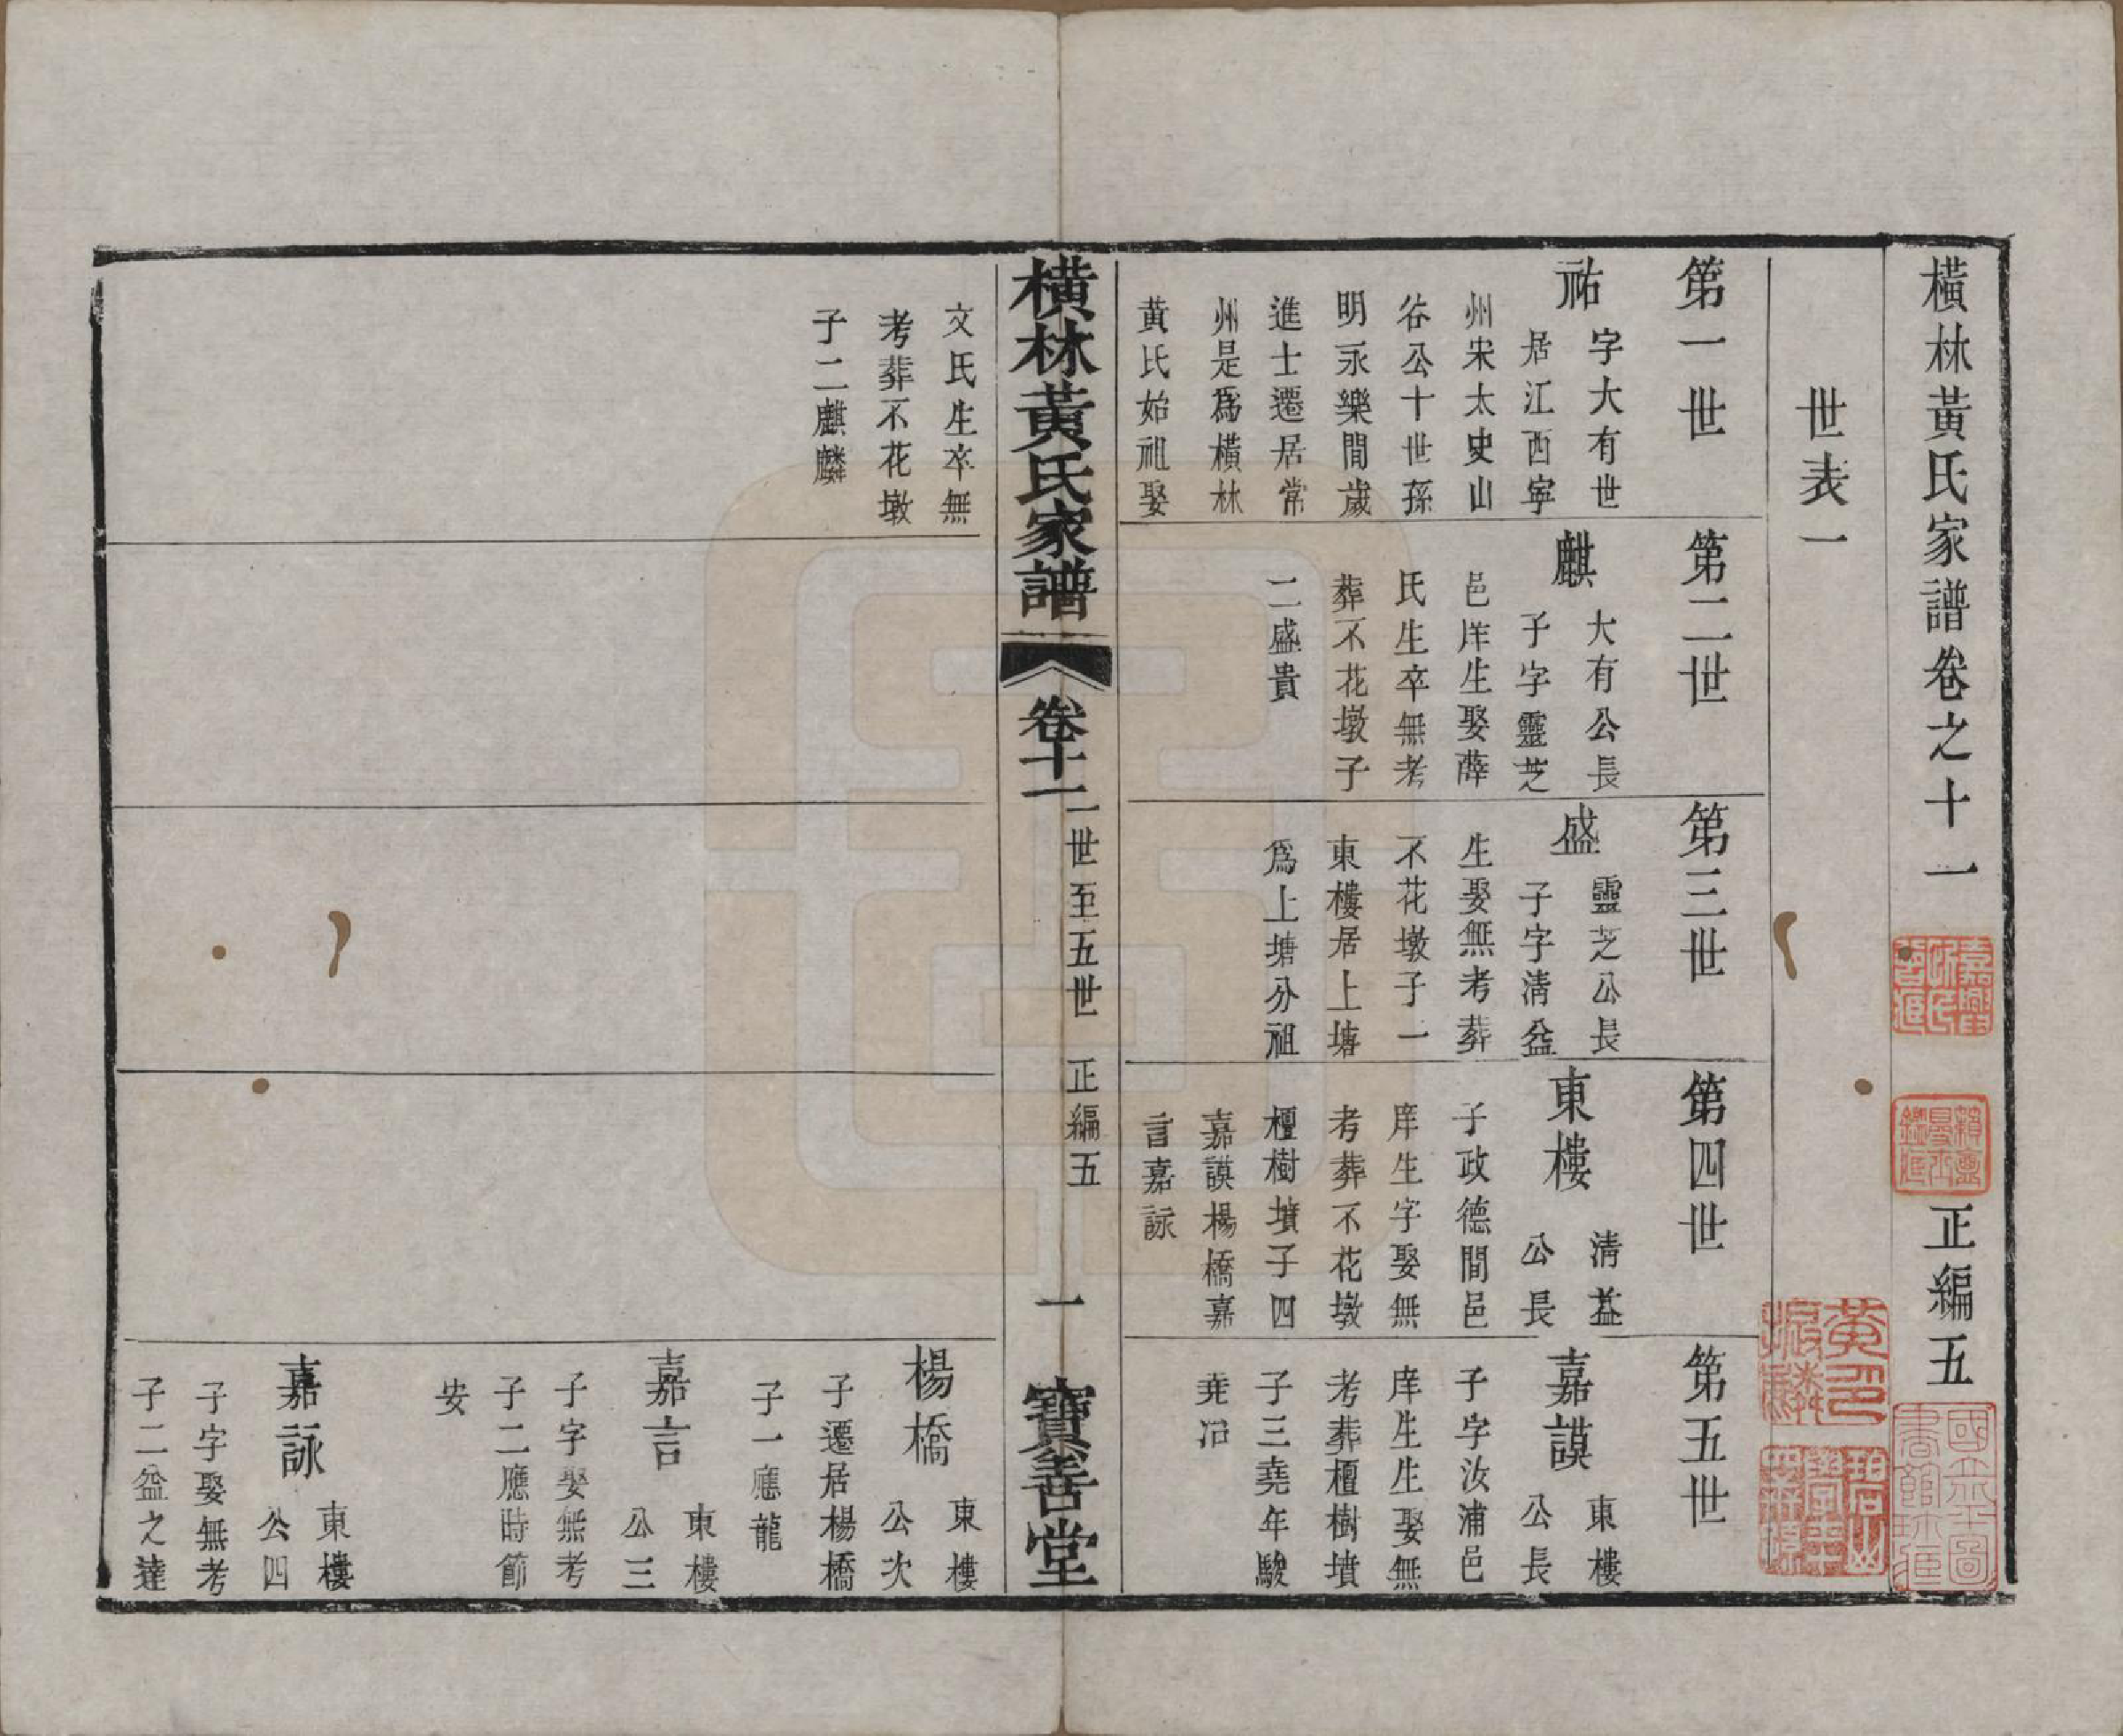 橫林黃氏家譜卷之十一
正編五
世表一
第一世
祐
字大有世
居江西寧
州宋太史山
谷公十世孫
明永樂間歲
進士遷居常
州是爲橫林
黃氏始祖娶
第二世
麒
大有公長
子字靈芝
邑庠生娶薛
氏生卒無考
葬不花墩子
二盛貴
第三世
盛
靈芝公長
子字清益
生娶無考葬
不花墩子一
東樓居上塘
爲上塘分祖
第四世
東樓
清益
公長
子政德間邑
庠生字娶無
考葬不花墩
檀樹墳子四
嘉謨楊橋嘉
言嘉詠
第五世
嘉謨
東樓
公長
子字汝浦邑
庠生生娶無
考葬檀樹墳
子三堯年駿
堯冶
橫林黃氏家譜
卷十一
一世至五世
正編五
一
寶善堂
文氏生卒無
考葬不花墩
子二麒麟
楊橋
東樓
公次
子遷居楊橋
子一應龍
嘉言
東樓
公三
子字娶無考
子二應時節
安
嘉詠
東樓
公四
子字娶無考
子二益之達